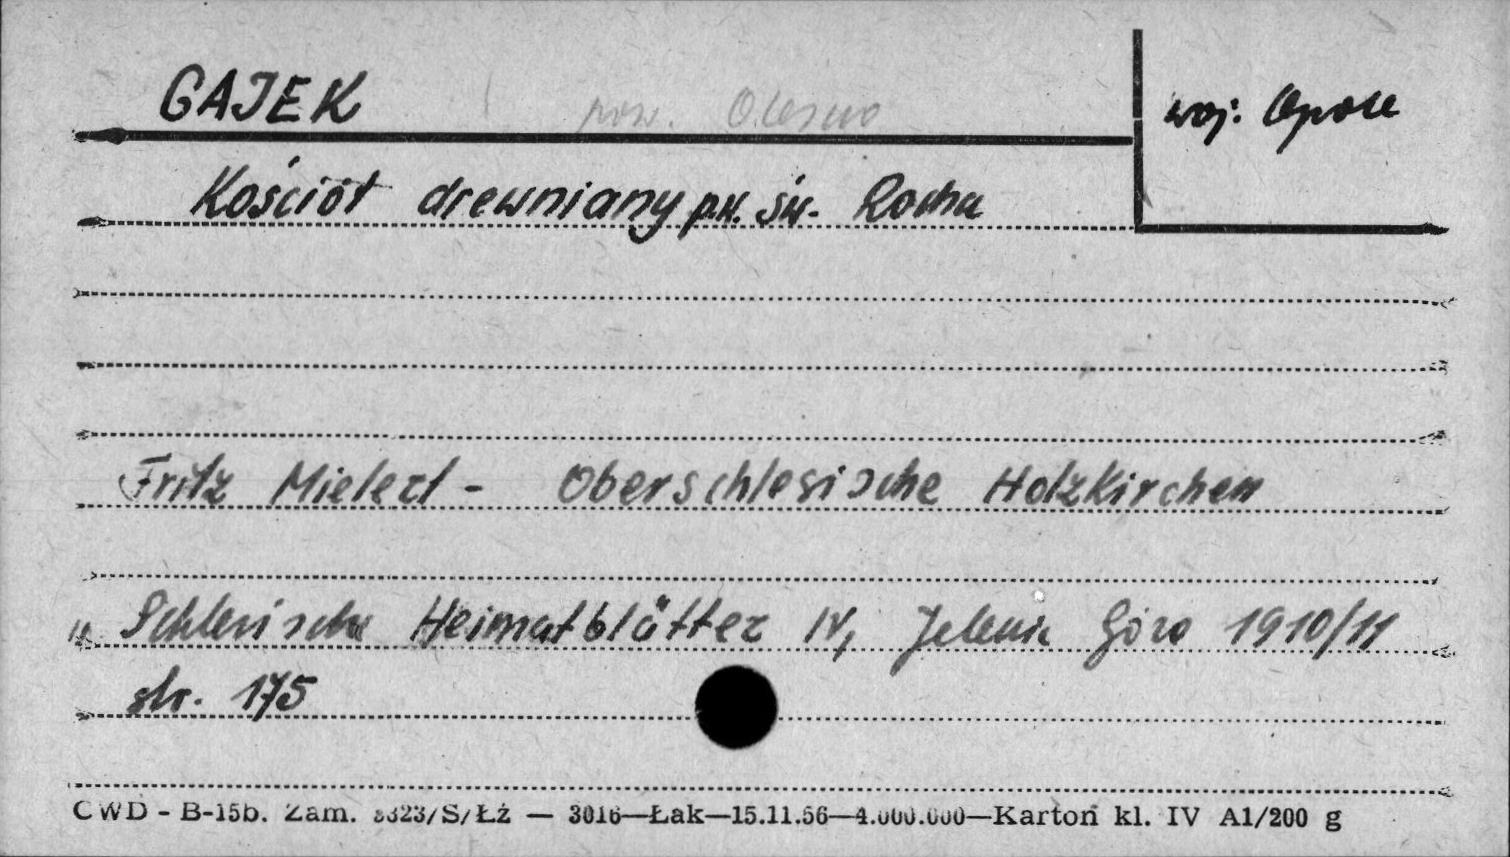 GAJEK pow. Olesno
woj. Opole
Kościół drewniany p.w. św. Rocha
Fritz Mielert - Oberschlesische Holzkirchen
w Schlesische Heimatblätter IV, Jelenia Góra 1910/11
str. 175
CWD - B-15b. Zam. 8323/S/Łż — 3016—Łak—15.11.56—4.000.000—Karton kl. IV A1/200 g